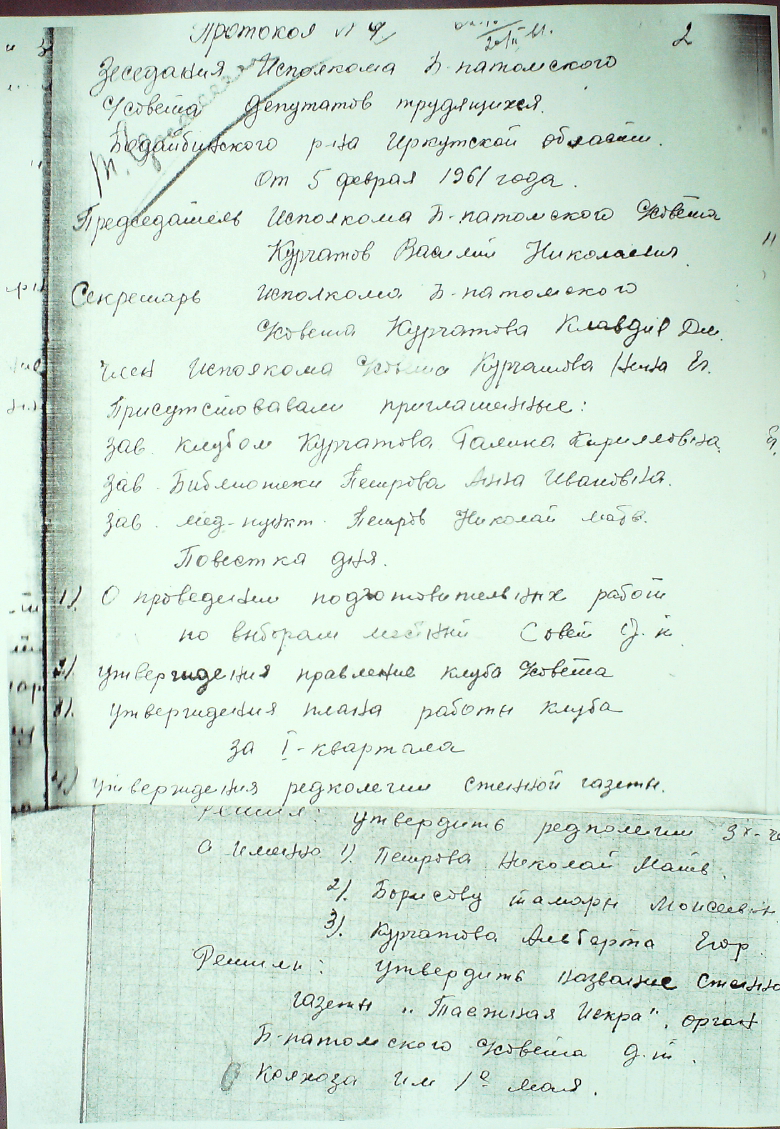 Протокол № 4 2
Заседания Исполкома Б-патомского
с/совета депутатов трудящихся.
Бодайбинского р-на Иркутской области.
От 5 феврая 1961 года.
Председатель Исполкома Б-патомского с/совета
Курчатов Василий Николаевич
Секретарь Исполкома Б-патомского
с/совета Курчатова Клавдия Дм.
Член Исполкома с/совета Курчатова Нина Ег.
Присутствовали приглашенные:
Зав. клубом Курчатова Галина Кирилловна
Зав. Библиотеки Петрова Анна Ивановна.
Зав. мед-пункт. Петров Николай Матв.
Повестка дня.
1). О проведении подготовительных работ
по выборам местный Совет
2). утверждения правление клуба с/совета
3). утверждения плана работы клуба
за I-квартала
4). утверждения редколегии стенной газеты.
Решили: утвердить редколегии 3х-
а именно 1). Петрова Николай Матв.
2). Борисову Тамары Моисеевн
3). Курчатова Альберта Егор.
Решили: утвердить название стенно
газеты „Таежная Искра", орган
Б-патомского с/совета д.т.
Колхоза им 1е мая.